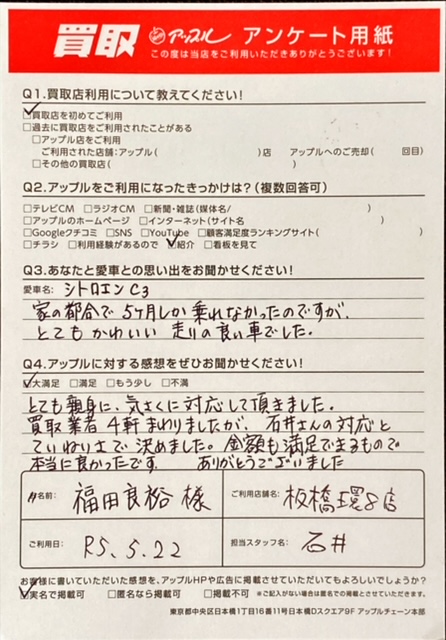 買取 アップル アンケート用紙
この度は当店をご利用いただきありがとうございます！
Q1.買取店利用について教えてください！
☑買取店を初めてご利用
□過去に買取店をご利用されたことがある
□アップル店をご利用
ご利用された店舗：アップル（ ）店 アップルへのご売却（ 回目）
□その他の買取店（ ）
Q2.アップルをご利用になったきっかけは？（複数回答可）
□テレビCM □ラジオCM □新聞・雑誌（媒体名/ ）
□アップルのホームページ □インターネット（サイト名 ）
□Googleクチコミ □SNS □YouTube □顧客満足度ランキングサイト（ ）
□チラシ □利用経験があるので ☑紹介 □看板を見て
Q3.あなたと愛車との思い出をお聞かせください！
愛車名：シトロエンC3
家の都合で5ヶ月しか乗れなかったのですが、
とてもかわいい走りの良い車でした。
Q4.アップルに対する感想をぜひお聞かせください！
☑大満足 □満足 □もう少し □不満
とても親身に、気さくに対応して頂きました。
買取業者4軒まわりましたが、石井さんの対応と
ていねいさで決めました。金額も満足できるもので
本当に良かったです。 ありがとうございました
お名前： 福田良裕 様
ご利用店舗名： 板橋環8店
ご利用日： R5.5.22
担当スタッフ名： 石井
お客様に書いていただいた感想を、アップルHPや広告に掲載させていただいてもよろしいでしょうか？
☑実名で掲載可 □匿名なら掲載可 □掲載不可 ※ご記入がない場合は匿名での掲載とさせていただきます。
東京都中央区日本橋1丁目16番11号日本橋Dスクエア9F アップルチェーン本部